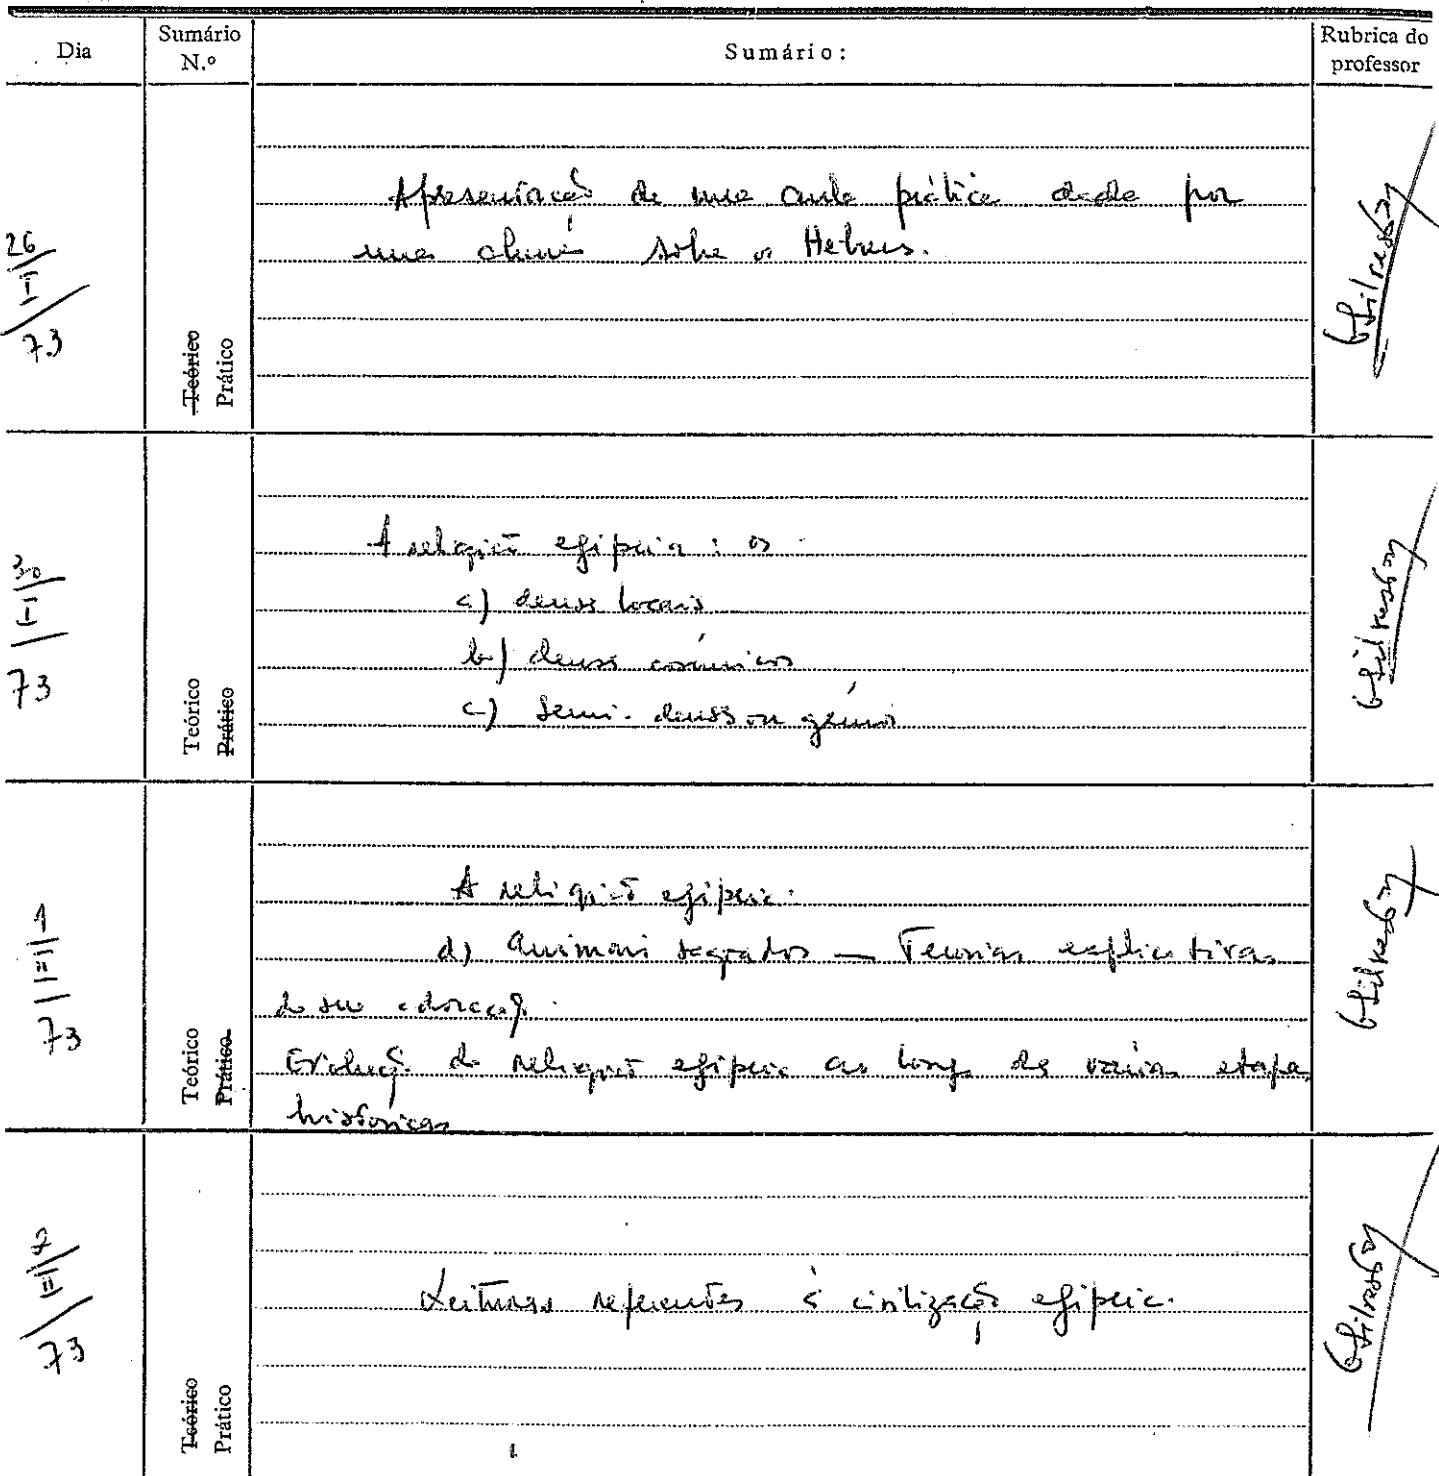 Dia
Sumário
N.º
Sumário:
Rubrica do
professor
26/I/73
Teórico
Prático
Apresentação de uma aula prática dada por
uma aluna sôbre os Hebreus.
30/I/73
Teórico
Prático
A religião egípcia: os
a) deuses locais
b) deuses cósmicos
c) Semi-deuses ou génios
1/II/73
Teórico
Prático
A religião egípcia.
d) Animais sagrados — Teorias explicativas
da sua adoração.
Evolução da religião egípcia ao longo das várias etapas
históricas
2/II/73
Teórico
Prático
Leituras referentes à civilização egípcia.